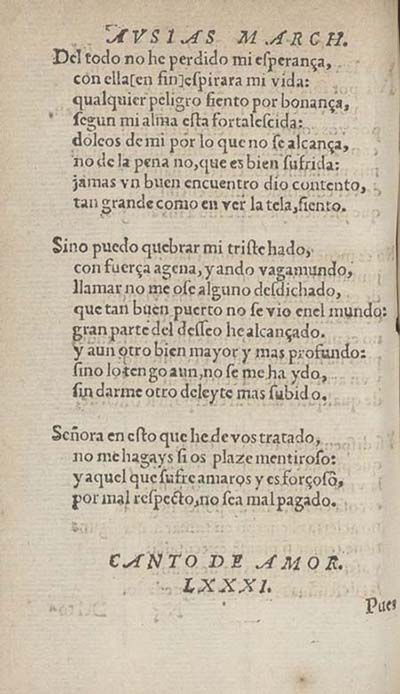 AVSIAS MARCH.
Del todo no he perdido mi esperança,
con ella[en fin]espirara mi vida:
qualquier peligro siento por bonança,
segun mi alma esta fortalescida:
doleos de mi por lo que no se alcança,
no de la pena no, que es bien sufrida:
jamas vn buen encuentro dio contento,
tan grande como en ver la tela, siento.
Sino puedo quebrar mi triste hado,
con fuerça agena, y ando vagamundo,
llamar no me ose alguno desdichado,
que tan buen puerto no se vio enel mundo:
gran parte del desseo he alcançado.
y aun otro bien mayor y mas profundo:
sino lo tengo aun, no se me ha ydo,
sin darme otro deleyte mas subido.
Señora en esto que he de vos tratado,
no me hagays si os plaze mentiroso:
y aquel que sufre amaros y es forçosõ,
por mal respecto, no sea mal pagado.
CANTO DE AMOR.
LXXXI.
Pues